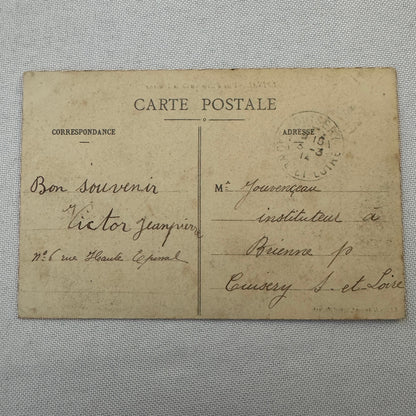 CARTE POSTALE
CORRESPONDANCE
ADRESSE
Bon souvenir
Victor Jeanpierre
N° 6 rue Haute Epinal
Mr Jouvenceau
instituteur à
Brienne p
Cuisery S. et Loire
CUISERY
ET LOIRE